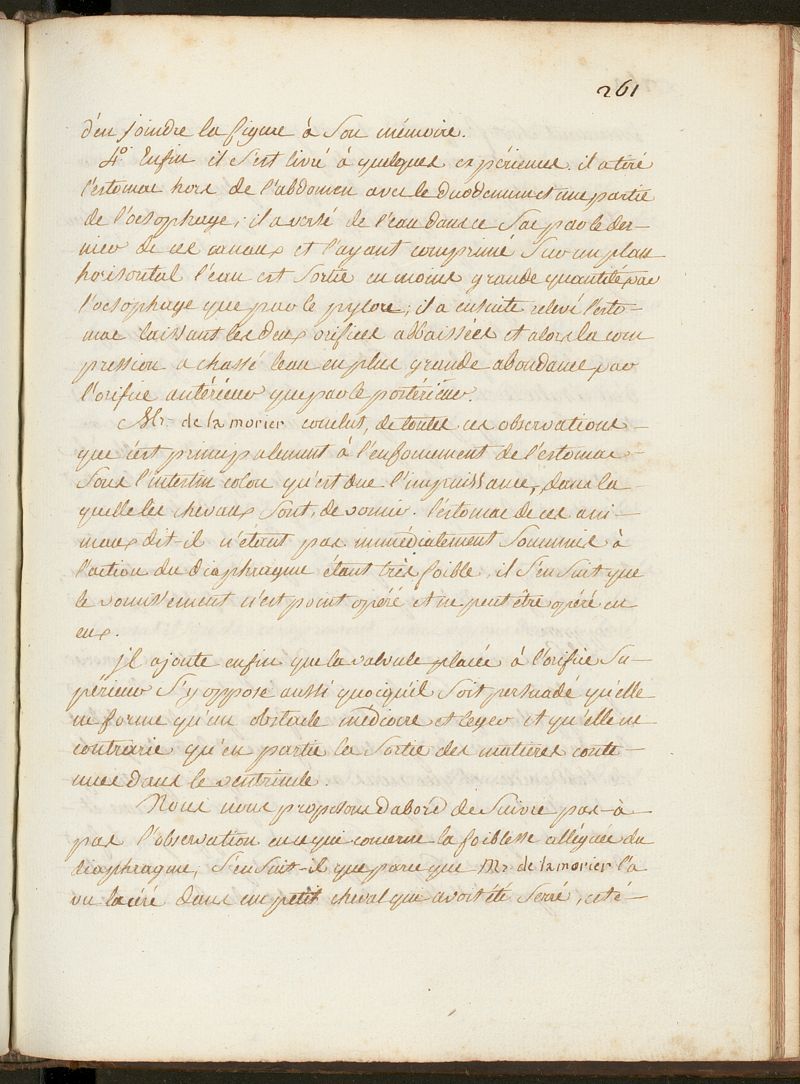 261
d'en joindre la figure à Son mémoire.
4.° Enfin il S'est livré à quelques expériences. il a tiré
l'estomac hors de l'abdomen avec le duodenum et une partie
de l'oesophage; il a versé de l'eau dans ce Sac par le der-
nier de ces canaux et l'ayant comprimé Sur un plan
horisontal l'eau est Sortie en moins grande quantité par
l'oesophage que par le pylore; il a ensuite relevé l'esto-
mac laissant les deux orifices abbaissées et alors la com
pression a chassé l'eau en plus grande abondance par
l'orifice antérieur que par le postérieur.
Mr. de la morier conclut, de toutes ces observations
que c'est principalement à l'enfoncement de l'estomac
Sous l'intestin colon qu'est due l'impuissance, dans la-
quelle les chevaux Sont, de vomir. l'estomac de ces ani-
maux dit-il n'étant pas immédiatement Soummis à
l'action du diaphragme étant très foible, il S'en Suit que
le vomissement n'est point opéré et ne peut être opéré en
eux.
jl ajoute enfin que la valvule placée à l'orifice Su-
périeur S'y oppose aussi quoiqu'il Soit persuadé qu'elle
ne forme qu'un obstacle médiocre et leger et qu'elle ne
contrarie qu'en partie la Sortie des matieres conte-
nues dans le ventricule.
Nous nous proposons d'abord de Suivre pas-à-
pas l'observation en ce qui concerne la foiblesse alléguée du
diaphragme, S'en Suit-il que parce que Mr. de la morier l'a
vu laceré dans un petit cheval qui avoit été Serré, cet é-